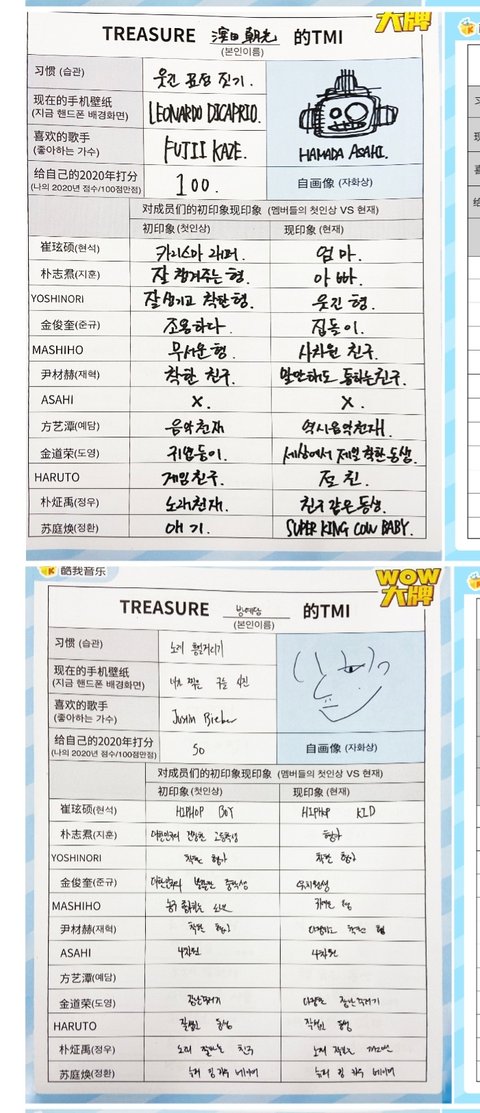 大牌
TREASURE 濱田朝光 的TMI
(본인이름)
习惯 (습관) 웃긴 표정 짓기.
现在的手机壁纸 LEONARDO DICAPRIO.
(지금 핸드폰 배경화면)
喜欢的歌手 FUJII KAZE.
(좋아하는 가수)
HAMADA ASAHI.
给自己的2020年打分 100.
(나의 2020년 점수/100점만점)
自画像 (자화상)
对成员们的初印象现印象 (멤버들의 첫인상 VS 현재)
初印象(첫인상) 现印象(현재)
崔玹硕(현석) 카리스마 래퍼. 엄마.
朴志焄(지훈) 잘 챙겨주는 형. 아빠.
YOSHINORI 잘생기고 착한형. 웃긴 형.
金俊奎(준규) 조용하다. 집돌이.
MASHIHO 무서운 형. 사차원 친구.
尹材赫(재혁) 착한 친구. 말안해도 통하는친구.
ASAHI X. X.
方艺潭(예담) 음악천재 역시음악천재.
金道荣(도영) 귀염둥이. 세상에서 제일 착한동생.
HARUTO 게임친구. 절친.
朴炡禹(정우) 노래천재. 친구같은동생.
苏庭焕(정환) 애기. SUPER KING COW BABY.
酷我音乐
WOW
大牌
TREASURE 방예담 的TMI
(본인이름)
习惯 (습관) 노래 흥얼거리기
现在的手机壁纸 내가 찍은 구름 사진
(지금 핸드폰 배경화면)
喜欢的歌手 Justin Bieber
(좋아하는 가수)
给自己的2020年打分 50
(나의 2020년 점수/100점만점)
自画像 (자화상)
对成员们的初印象现印象 (멤버들의 첫인상 VS 현재)
初印象(첫인상) 现印象(현재)
崔玹硕(현석) HIPHOP BOY HIPHOP KID
朴志焄(지훈) 대한민국의 건장한 고등학생 형아
YOSHINORI 착한 형아 착한 형아
金俊奎(준규) 대한민국의 평범한 중학생
MASHIHO
尹材赫(재혁) 착한 형아 착한 형
ASAHI 4차원 4차원
方艺潭(예담)
金道荣(도영) 장난꾸러기 장난꾸러기
HARUTO 잘생긴 동생 동생
朴炡禹(정우) 노래 잘하는 친구 노래
苏庭焕(정환)